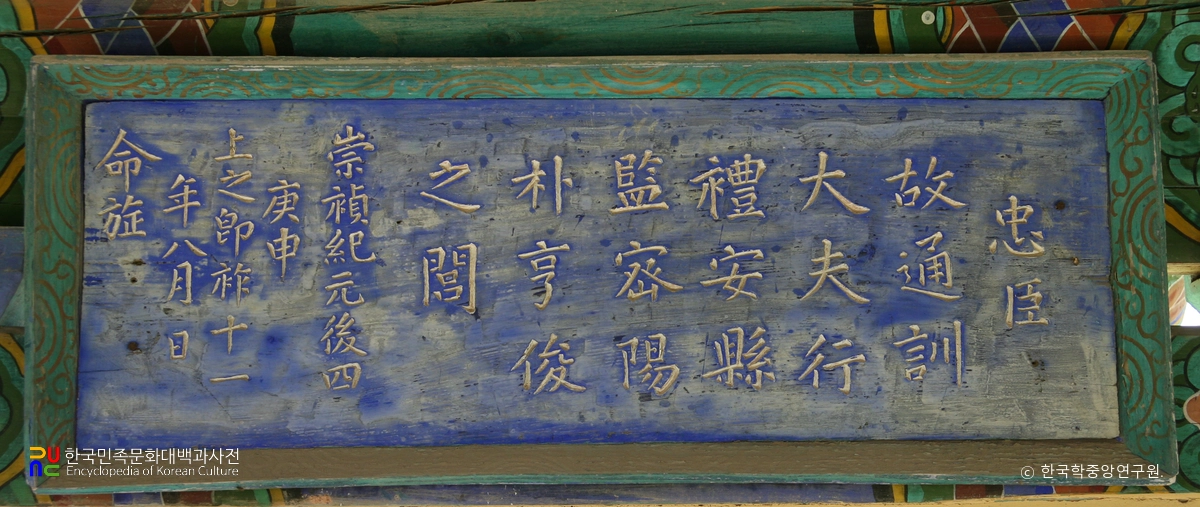 忠臣
故通訓
大夫行
禮安縣
監密陽
朴亨俊
之閭
崇禎紀元後四
庚申
上之卽祚十一
年八月 日
命旌
한국민족문화대백과사전
Encyclopedia of Korean Culture
© 한국학중앙연구원